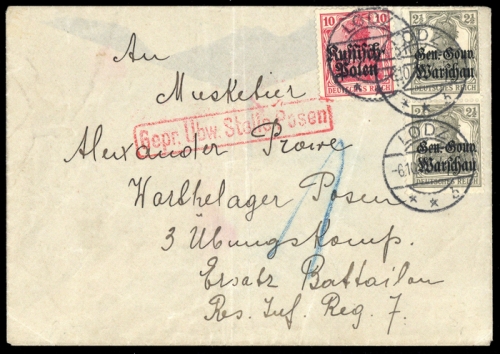 10 10
Russisch-
Polen
DEUTSCHES REICH
2½ 2½
Gen.-Gouv.
Warschau
DEUTSCHES REICH
2½
Gen.-Gouv.
Warschau
DEUTSCHES REICH
LODZ
LODZ
LODZ
-6.10
* * b
An
Musketier
Gepr. Übw. Stelle Posen
Alexander Prowe
Warthelager Posen
3 Übungskomp.
Ersatz Battailon
Res. Inf. Reg. 7.